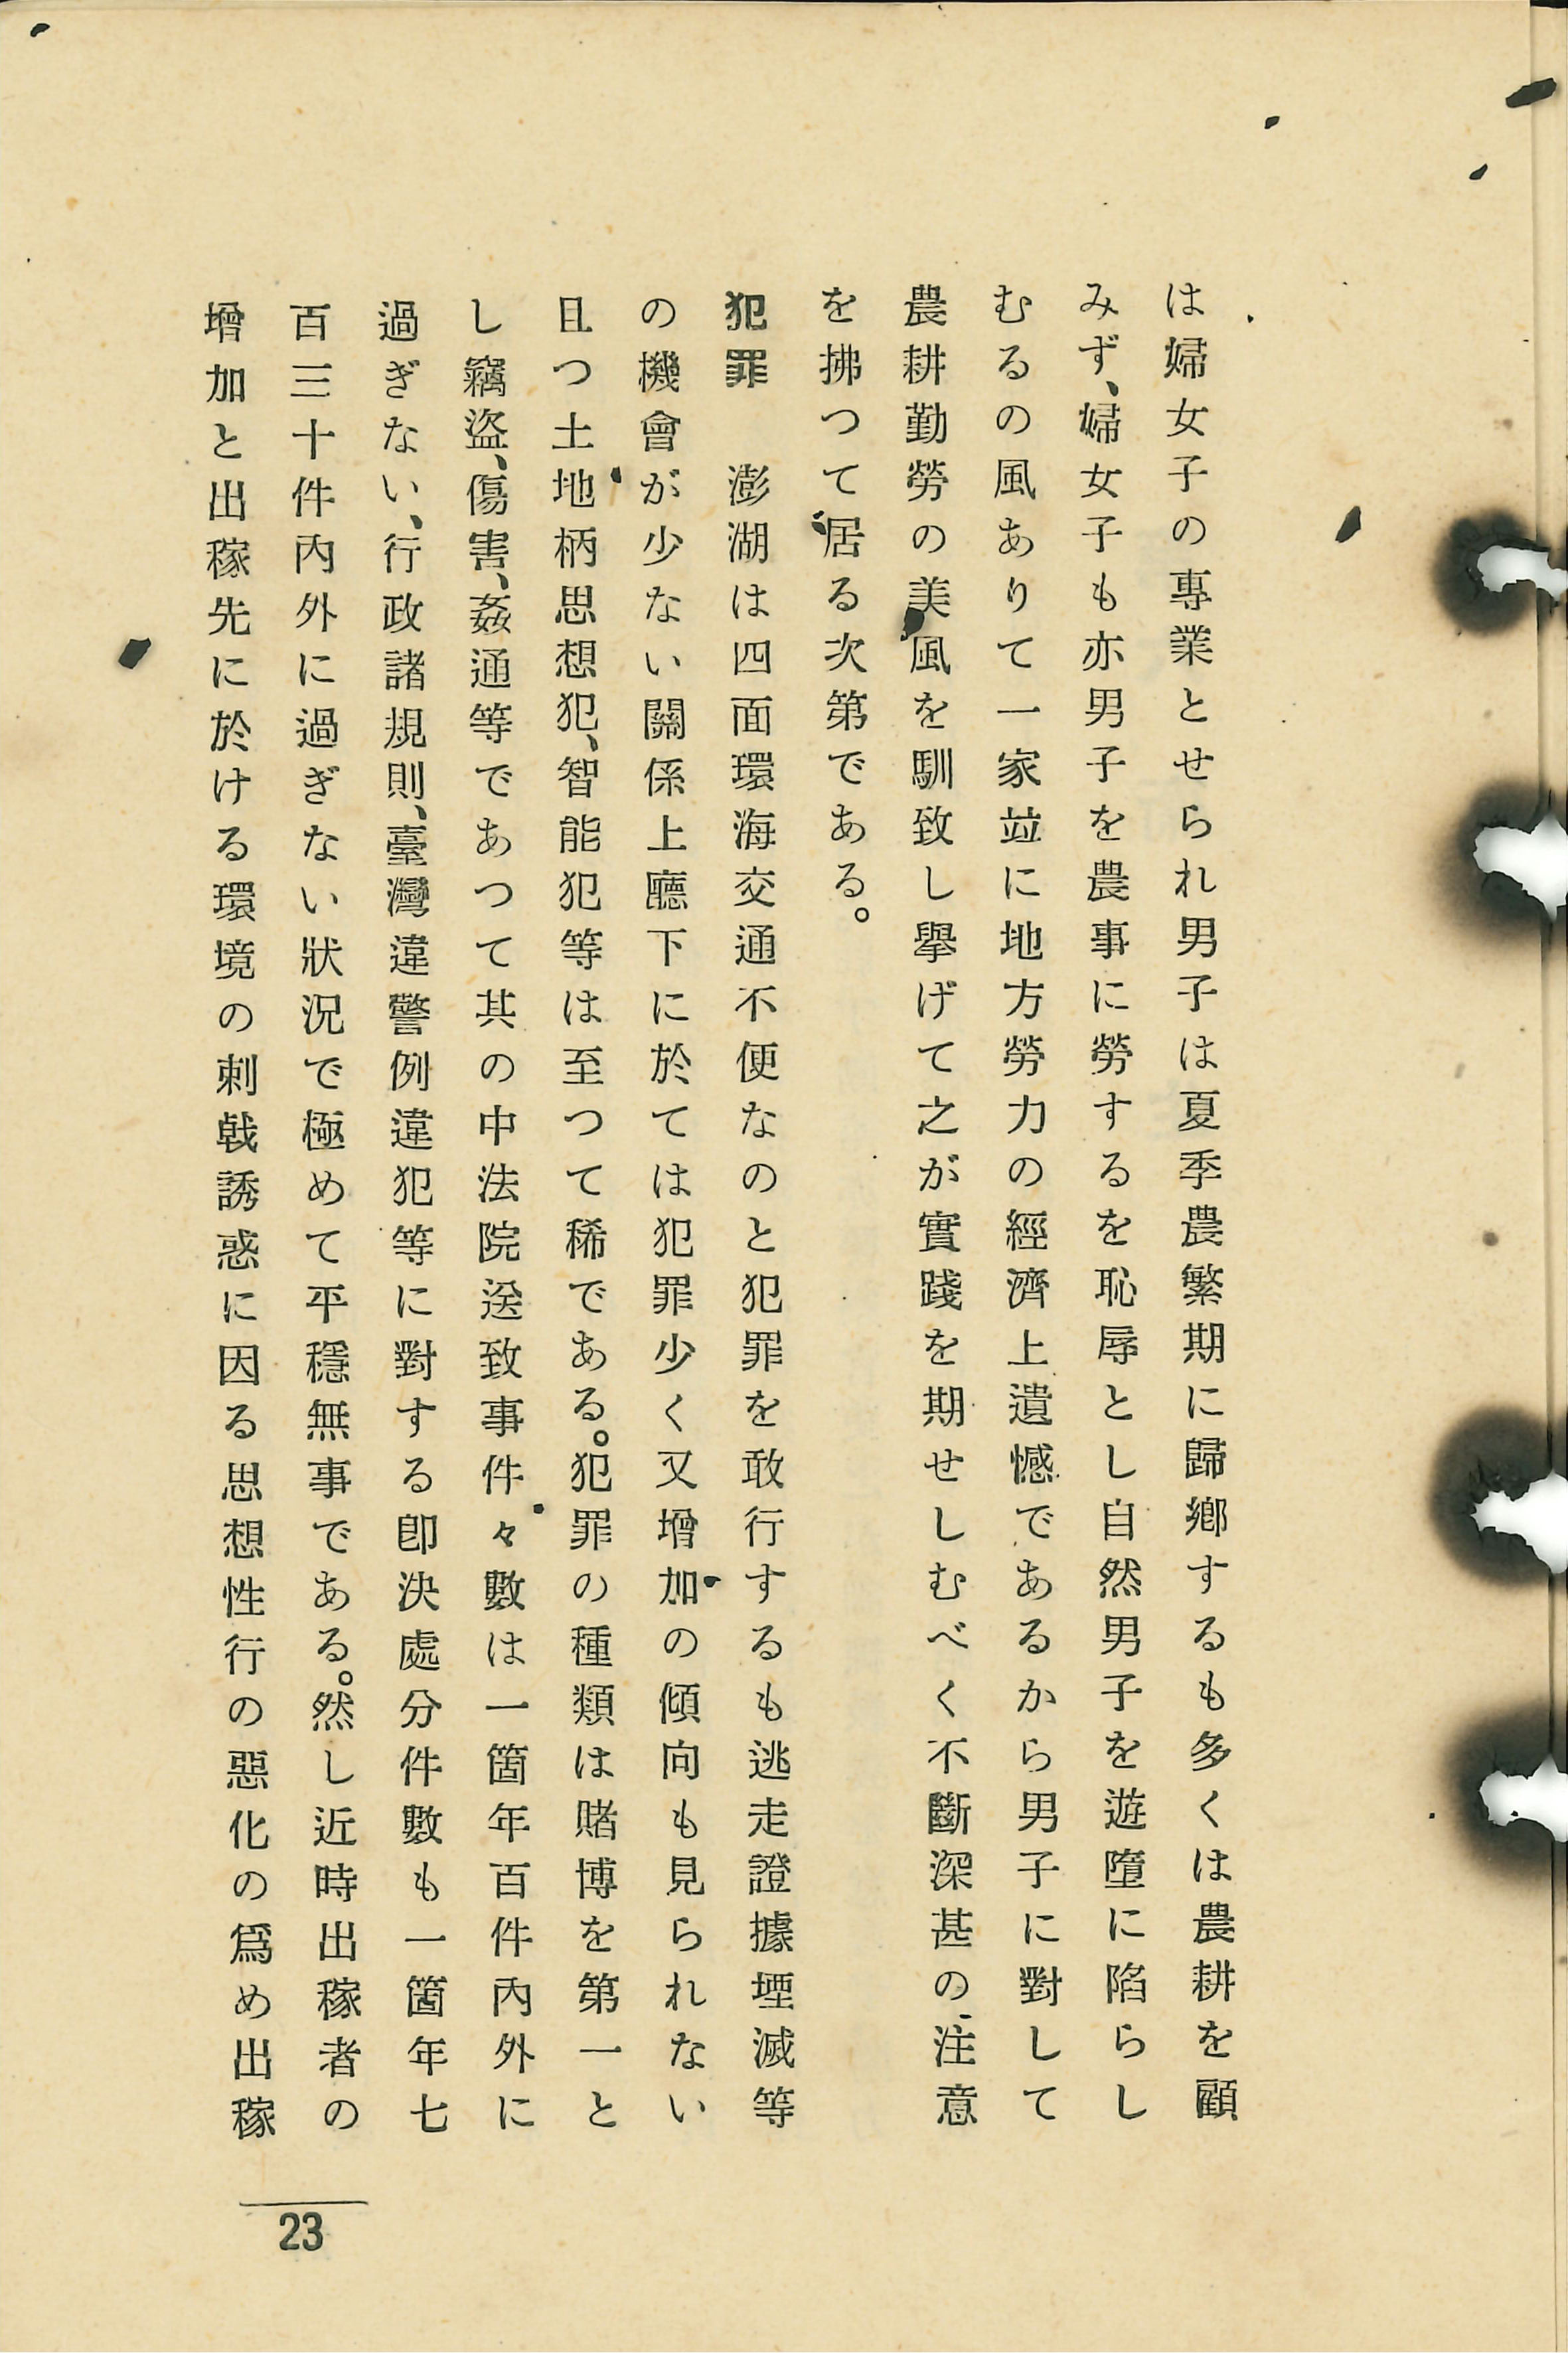 は婦女子の專業とせられ男子は夏季農繁期に歸鄕するも多くは農耕を顧
みず、婦女子も亦男子を農事に勞するを恥辱とし自然男子を遊墮に陷らし
むるの風ありて一家竝に地方勞力の經濟上遺憾であるから男子に對して
農耕勤勞の美風を馴致し擧げて之が實踐を期せしむべく不斷深甚の注意
を拂つて居る次第である。
犯罪　澎湖は四面環海交通不便なのと犯罪を敢行するも逃走證據堙滅等
の機會が少ない關係上廳下に於ては犯罪少く又增加の傾向も見られない
且つ土地柄思想犯、智能犯等は至つて稀である。犯罪の種類は賭博を第一と
し竊盜、傷害、姦通等であつて其の中法院送致事件々數は一箇年百件內外に
過ぎない、行政諸規則、臺灣違警例違犯等に對する卽決處分件數も一箇年七
百三十件內外に過ぎない狀況で極めて平穩無事である。然し近時出稼者の
增加と出稼先に於ける環境の刺戟誘惑に因る思想性行の惡化の爲め出稼
23